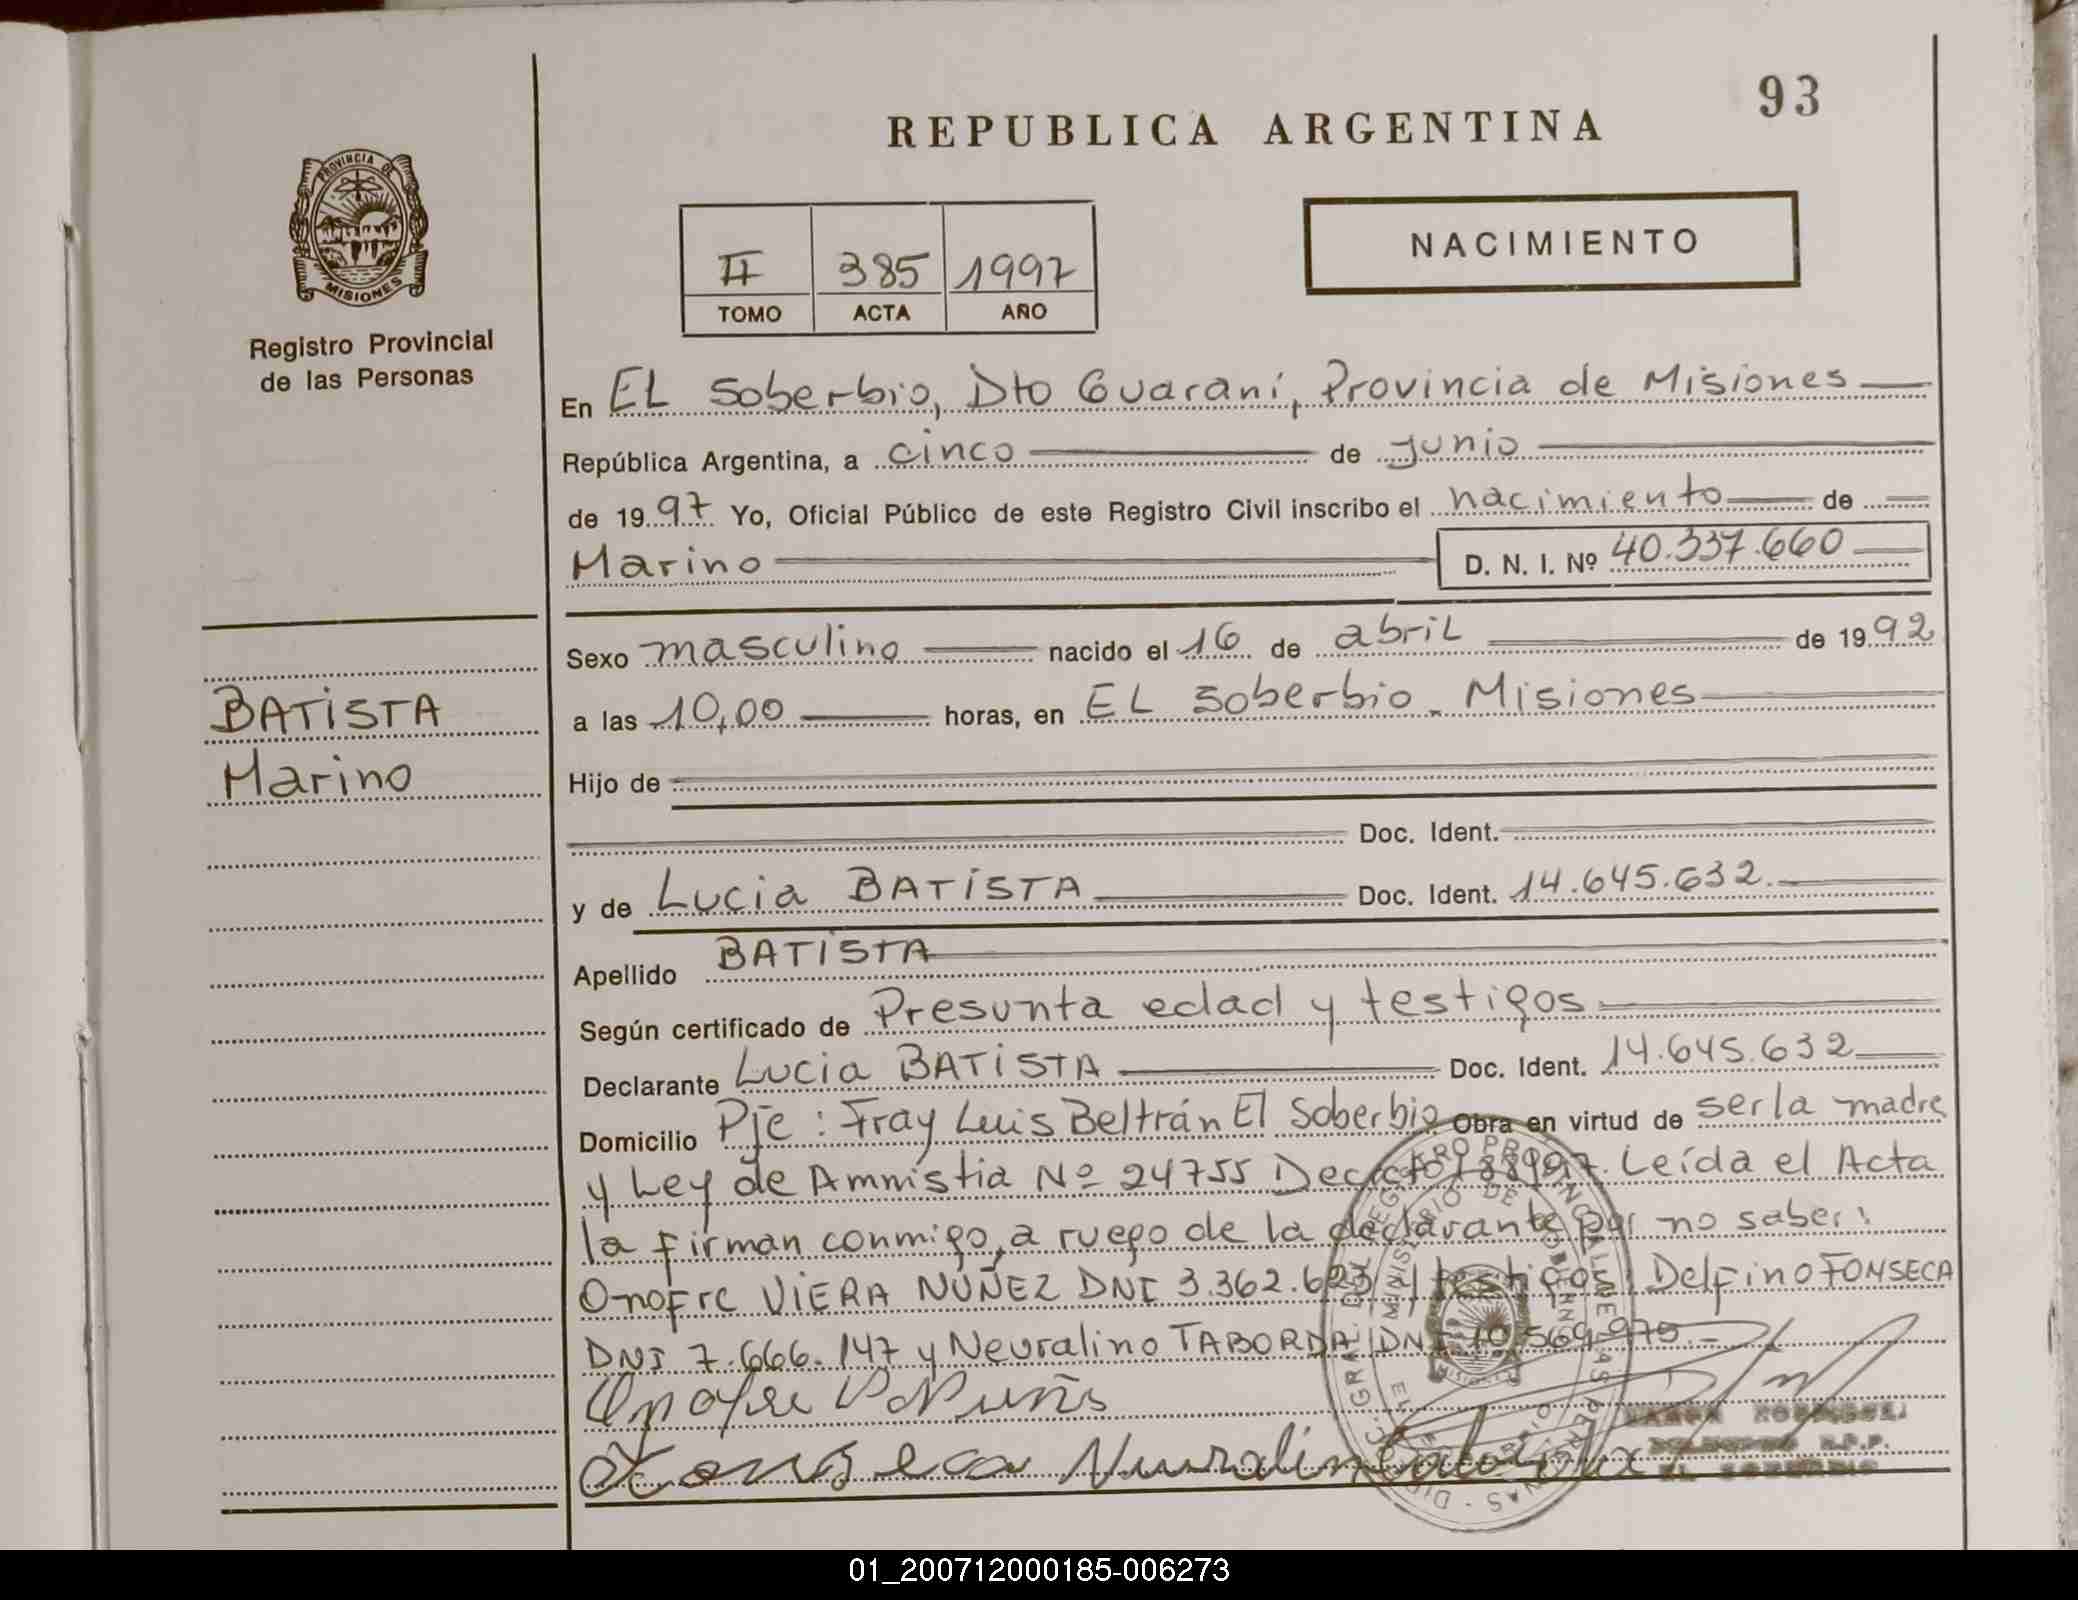 93
REPUBLICA ARGENTINA
PROVINCIA DE
MISIONES
Registro Provincial
de las Personas
II 385 1997
TOMO ACTA AÑO
NACIMIENTO
En EL Soberbio, Dto Guaraní, Provincia de Misiones
República Argentina, a cinco de junio
de 1997 Yo, Oficial Público de este Registro Civil inscribo el nacimiento de
Marino D. N. I. Nº 40.337.660
Sexo masculino nacido el 16 de abril de 1992
BATISTA
Marino
a las 10,00 horas, en EL Soberbio - Misiones
Hijo de
Doc. Ident.
y de Lucia BATISTA Doc. Ident. 14.645.632
Apellido BATISTA
Según certificado de Presunta edad y testigos
Declarante Lucia BATISTA Doc. Ident. 14.645.632
Domicilio Pje: Fray Luis Beltrán El Soberbio Obra en virtud de ser la madre
y Ley de Amnistia Nº 24755 Leída el Acta
la firman conmigo, a ruego de la declarante por no saber:
Onofre VIERA NUÑEZ DNI 3.362.623 y testigos: Delfino FONSECA
DNI 7.666.147 y Neuralino TABORDA DNI 10.569.975.-
EL SOBERBIO
01_200712000185-006273